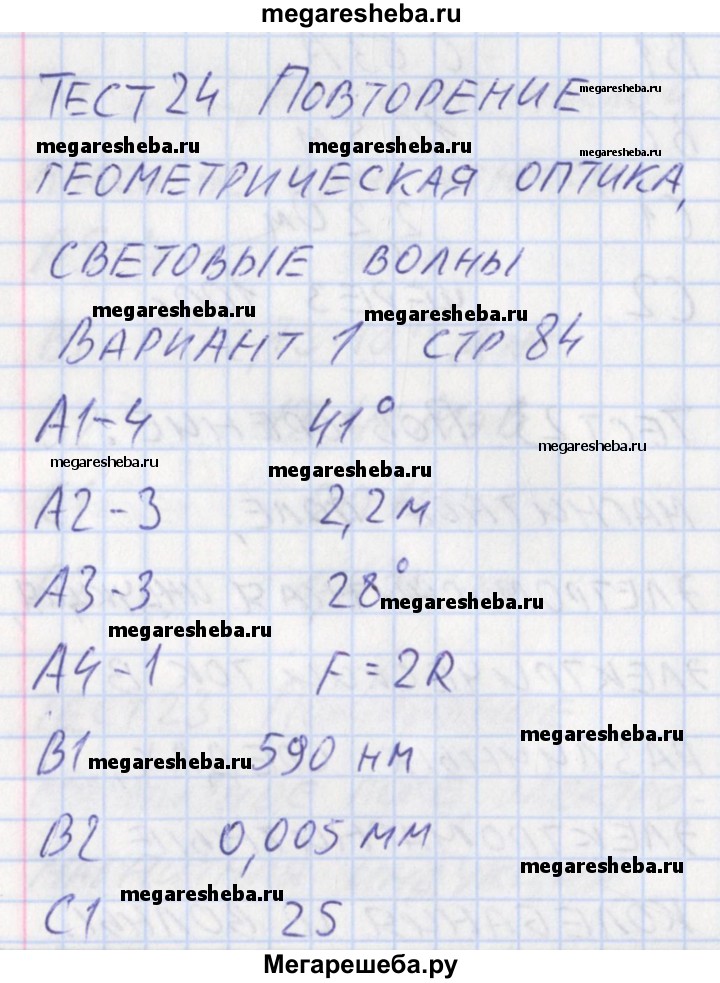 megaresheba.ru
ТЕСТ 24 ПОВТОРЕНИЕ megaresheba.ru
megaresheba.ru megaresheba.ru megaresheba.ru
ГЕОМЕТРИЧЕСКАЯ ОПТИКА,
СВЕТОВЫЕ ВОЛНЫ
megaresheba.ru megaresheba.ru
ВАРИАНТ 1 СТР 84
А1-4 41°
megaresheba.ru megaresheba.ru megaresheba.ru
А2-3 2,2 м
А3-3 28° megaresheba.ru
megaresheba.ru
А4-1 F = 2R
megaresheba.ru
В1 megaresheba.ru 590 нм
В2 0,005 мм
megaresheba.ru
megaresheba.ru
С1 25
Мегарешеба.ру